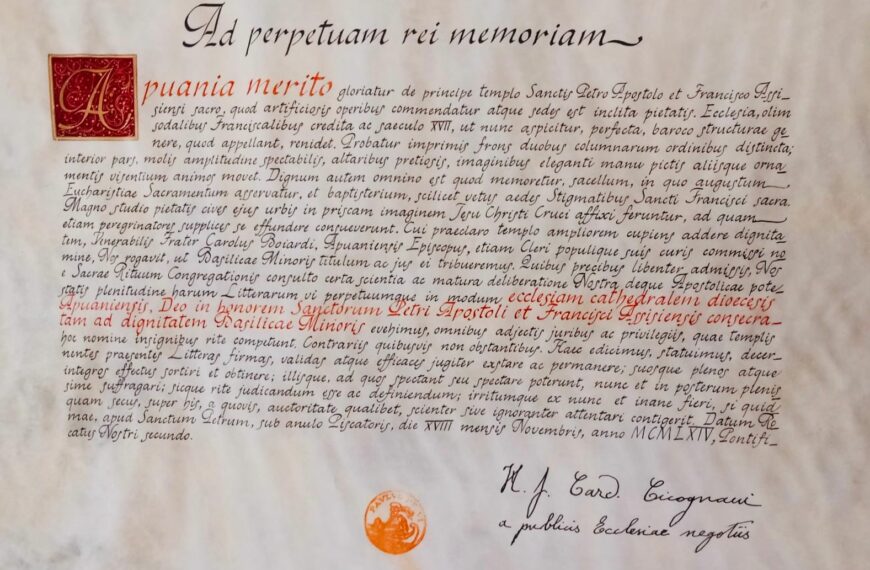 Ad perpetuam rei memoriam
Apuania merito gloriatur de principe templo Sanctis Petro Apostolo et Francisco Assi-
siensi sacro, quod artificiosis operibus commendatur atque sedes est inclita pietatis. Ecclesia, olim
sodalibus Franciscalibus credita ac saeculo XVII, ut nunc aspicitur, perfecta, baroco structurae ge-
nere, quod appellant, renidet. Probatur imprimis frons duobus columnarum ordinibus distincta;
interior pars, molis amplitudine spectabilis, altaribus pretiosis, imaginibus eleganti manu pictis aliisque orna-
mentis visentium animos movet. Dignum autem omnino est quod memoretur, sacellum, in quo augustum
Eucharistiae Sacramentum asservatur, et baptisterium, scilicet vetus aedes Stigmatibus Sancti Francisci sacra.
Magno studio pietatis cives ejus urbis in priscam imaginem Jesu Christi Cruci affixi feruntur, ad quam
etiam peregrinatores supplices se effundere consueverunt. Cui praeclaro templo ampliorem cupiens addere dignita-
tem, Venerabilis Frater Carolus Boiardi, Apuaniensis Episcopus, etiam Cleri populique suis curis commissi no-
mine, Nos rogavit, ut Basilicae Minoris titulum ac jus ei tribueremus. Quibus precibus libenter admissis, Nos
e Sacrae Rituum Congregationis consulto certa scientia ac matura deliberatione Nostra deque Apostolicae pote-
statis plenitudine harum Litterarum vi perpetuumque in modum ecclesiam cathedralem dioecesis
Apuaniensis, Deo in honorem Sanctorum Petri Apostoli et Francisci Assisiensis consecra-
tam ad dignitatem Basilicae Minoris evehimus, omnibus adjectis juribus ac privilegiis, quae templis
hoc nomine insignibus rite competunt. Contrariis quibusvis non obstantibus. Haec edicimus, statuimus, decer-
nentes praesentes Litteras firmas, validas atque efficaces jugiter exstare ac permanere; suosque plenos atque
integros effectus sortiri et obtinere; illisque, ad quos spectant seu spectare poterunt, nunc et in posterum plenis-
sime suffragari; sicque rite judicandum esse ac definiendum; irritumque ex nunc et inane fieri, si quid-
quam secus, super his, a quovis, auctoritate qualibet, scienter sive ignoranter attentari contigerit. Datum Ro-
mae, apud Sanctum Petrum, sub anulo Piscatoris, die XVIII mensis Novembris, anno MCMLXIV, Pontifi-
catus Nostri secundo.
H. J. Card. Cicognani
a publicis Ecclesiae negotiis